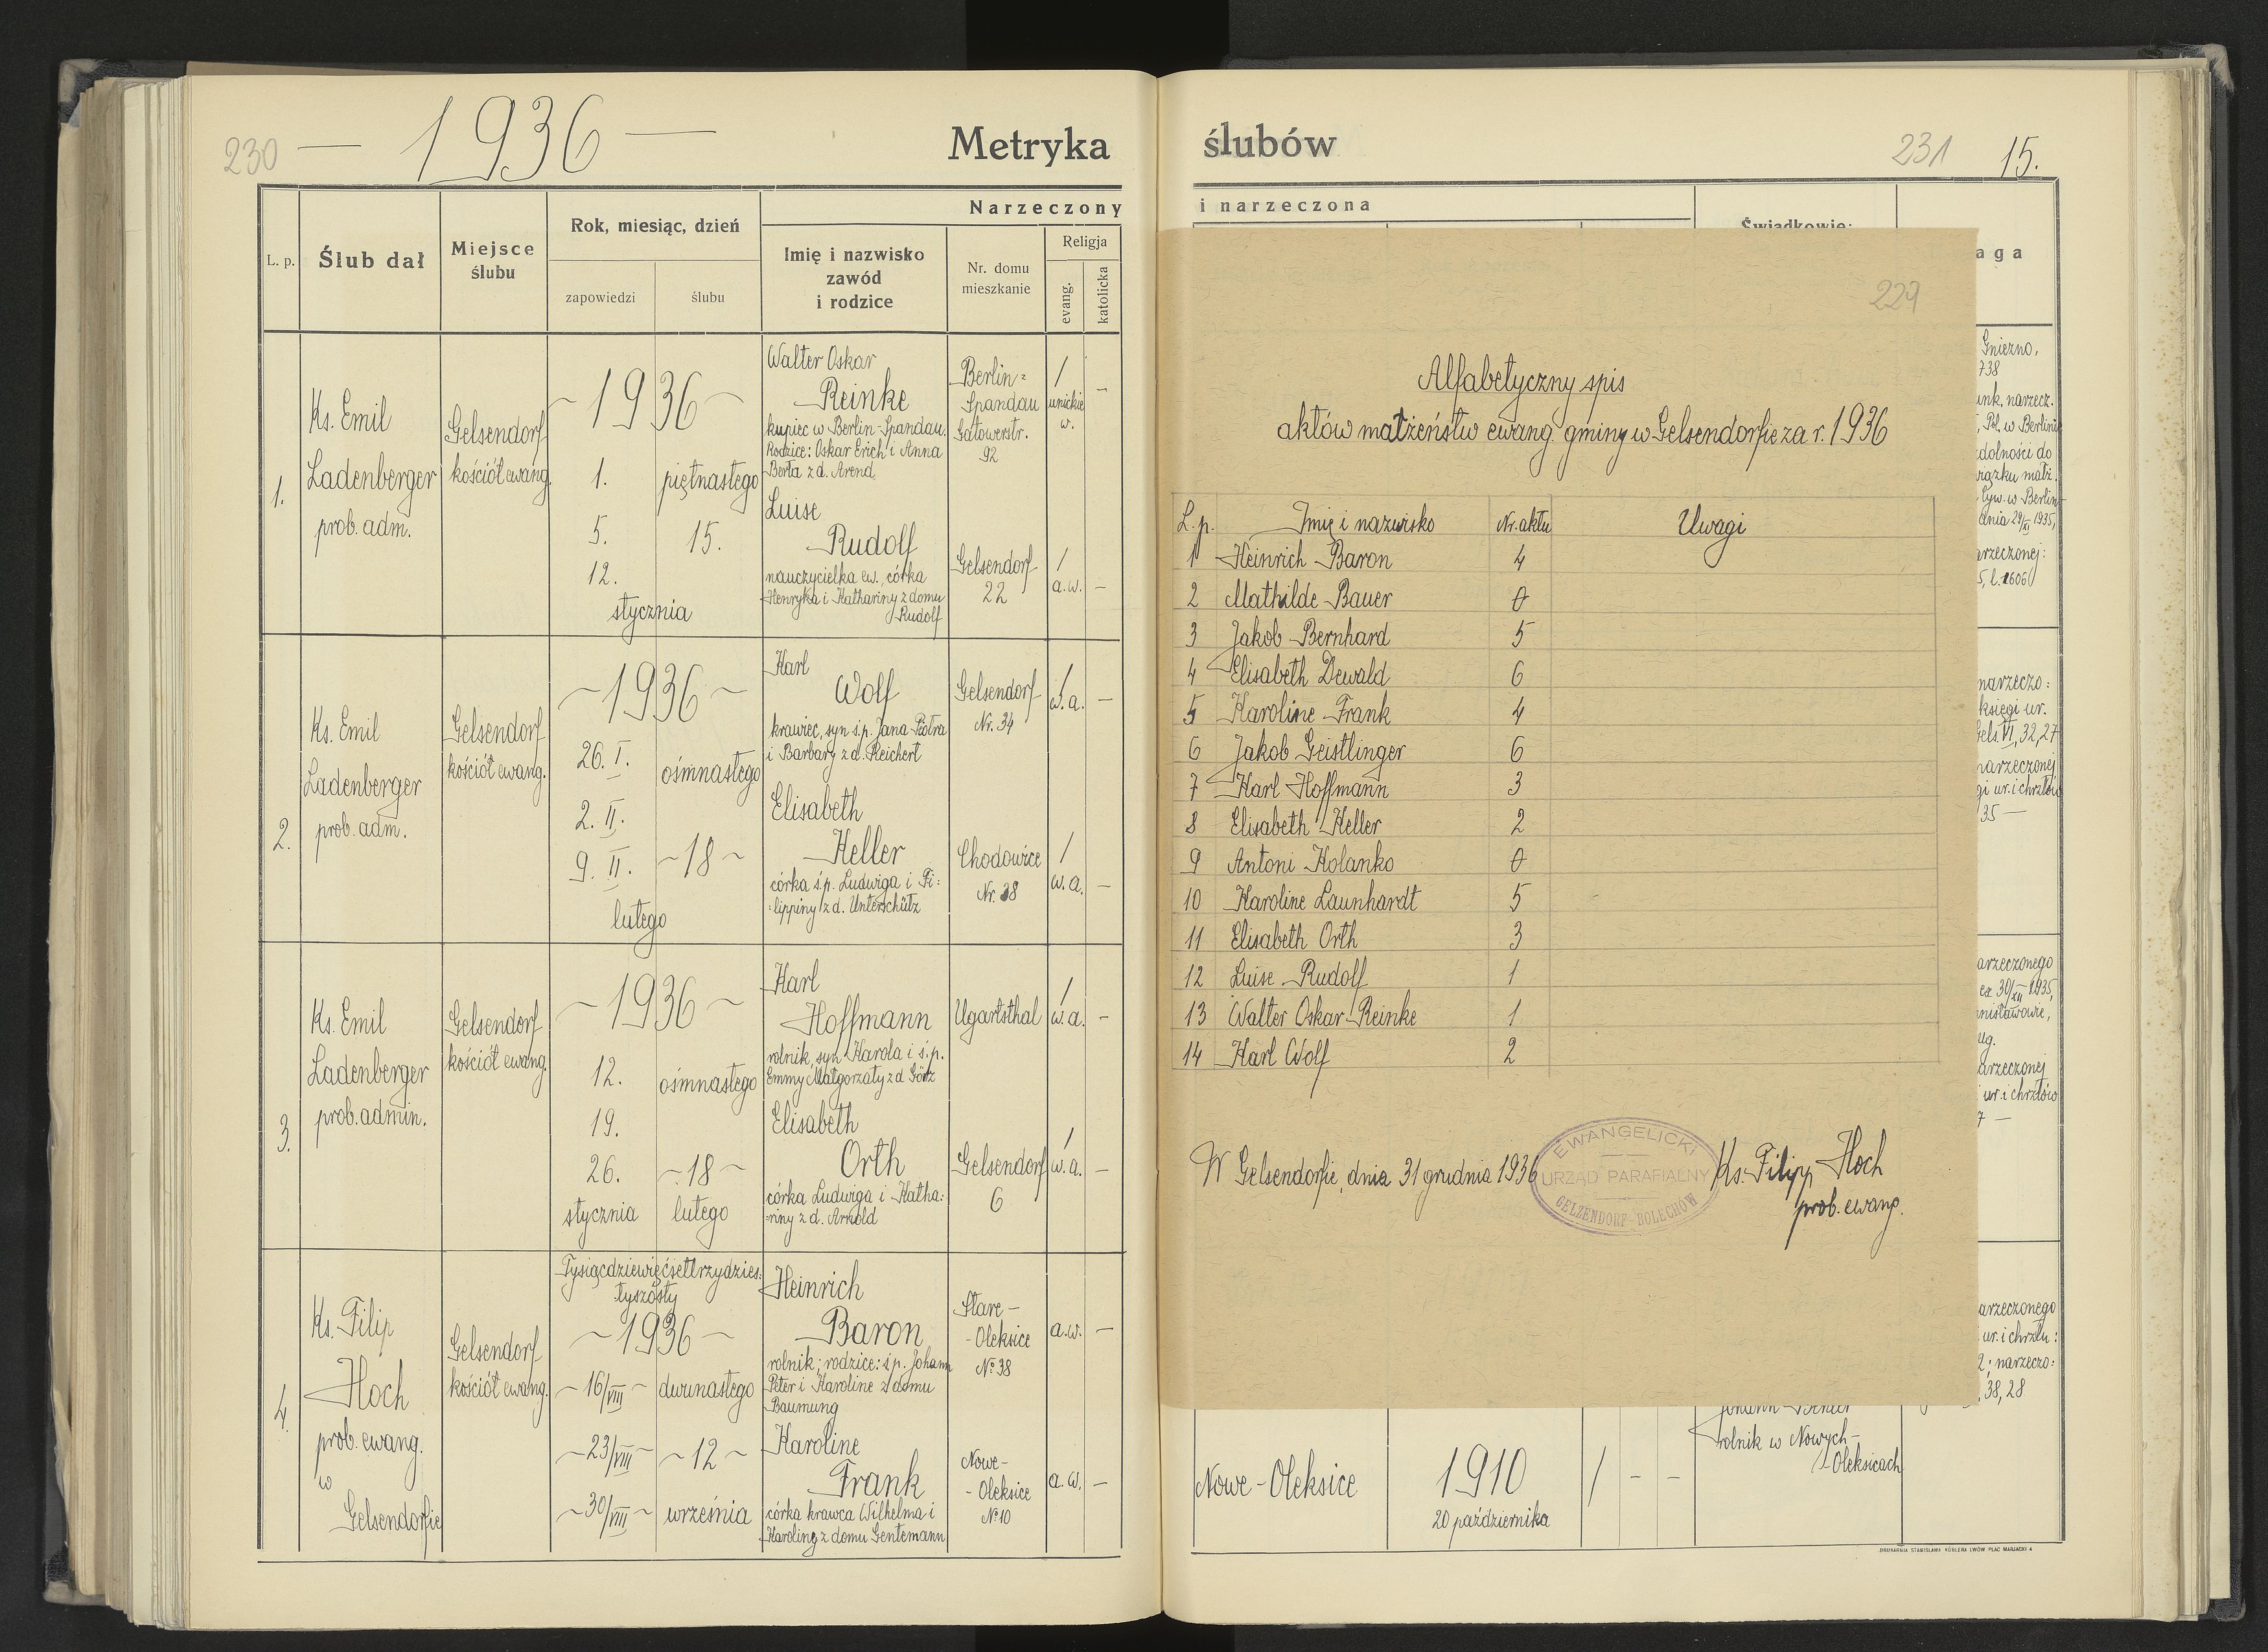 230 — 1936 —
Metryka
ślubów
231 15.
L. p.
Ślub dał
Miejsce
ślubu
Rok, miesiąc, dzień
zapowiedzi
ślubu
Narzeczony
Imię i nazwisko
zawód
i rodzice
Nr. domu
mieszkanie
Religja
evang.
katolicka
i narzeczona
Świadkowie:
aga
1.
Ks. Emil
Ladenberger
prob. adm.
Gelsendorf
kościół ewang.
~ 1936 ~
1.
5.
12.
stycznia
piętnastego
15.
Walter Oskar
Reinke
kupiec w Berlin-Spandau.
Rodzice: Oskar Erich i Anna
Berta z d. Arend
Berlin=
Spandau
Gatowerstr.
92
/
unickie
w.
–
Luise
Rudolf
nauczycielka ew., córka
Henryka i Kathariny z domu
Rudolf
Gelsendorf
22
/
a.w.
–
2.
Ks. Emil
Ladenberger
prob. adm.
Gelsendorf
kościół ewang.
~ 1936 ~
26. I.
2. II.
9. II.
lutego
ośmnastego
~ 18 ~
Karl
Wolf
krawiec, syn s.p. Jana Piotra
i Barbary z d. Reichert
Gelsendorf
Nr. 34
/
w.a.
–
Elisabeth
Heller
córka ś.p. Ludwiga i Fi:
:lippiny z d. Unterschütz
Chodowice
Nr. 38
/
w.a.
–
3.
Ks. Emil
Ladenberger
prob. admin.
Gelsendorf
kościół ewang.
~ 1936 ~
12.
19.
26.
stycznia
ośmnastego
~ 18 ~
lutego
Karl
Hoffmann
rolnik, syn Karola i ś.p.
Emmy Małgorzaty z d. Görz
Ugartsthal
/
w.a.
–
Elisabeth
Orth
córka Ludwiga i Katha:
:riny z d. Arnold
Gelsendorf
6
/
w.a.
–
4.
Ks. Filip
Hoch
prob. ewang.
w
Gelsendorfie
Gelsendorf
kościół ewang.
Tysiącdziewięćsettrzydzies:
tyszósty
~ 1936 ~
~ 16/VIII ~
~ 23/VIII ~
~ 30/VIII ~
dwunastego
~ 12 ~
września
Heinrich
Baron
rolnik; rodzice: ś.p. Johann
Peter i Karoline z domu
Baumung
Stare-
-Oleksice
No 38
a.w.
–
Karoline
Frank
córka krawca Wilhelma i
Karoliny z domu Gentemann
Nowe-
-Oleksice
No 10
a.w.
–
229
Alfabetyczny spis
aktów małżeństw ewang. gminy w Gelsendorfie za r. 1936
L.p. Imię i nazwisko Nr. aktu Uwagi
1 Heinrich Baron 4
2 Mathilde Bauer 0
3 Jakob Bernhard 5
4 Elisabeth Dewald 6
5 Karoline Frank 4
6 Jakob Geistlinger 6
7 Karl Hoffmann 3
8 Elisabeth Heller 2
9 Antoni Kolanko 0
10 Karoline Launhardt 5
11 Elisabeth Orth 3
12 Luise Rudolf 1
13 Walter Oskar Reinke 1
14 Karl Wolf 2
W Gelsendorfie, dnia 31 grudnia 1936
EWANGELICKI
URZĄD PARAFIALNY
GELZENDORF-BOLECHÓW
Ks. Filipp Hoch
prob. ewang.
Gniezno,
738
unk. narzecz.
Pol. w Berlinie
zdolności do
wiązku małż.
Cyw. w Berlin-
dnia 29/XI 1935,
arzeczonej:
5, l. 1606
narzeczo:
księgi ur.
Gels. VI, 32, 27
narzeczonej
gi ur. i chrztów
35 —
arzeczonego
ex 30/XII 1935,
anisławowie,
ug.
arzeczonej
ur. i chrztów
7 —
arzeczonego
ur. i chrztu:
2; narzeczo:
, 38, 28
Nowe-Oleksice
1910
20 października
/ – –
rolnik w Nowych-
-Oleksicach
DRUKARNIA STANISŁAWA KÖHLERA LWÓW PLAC MARJACKI 4